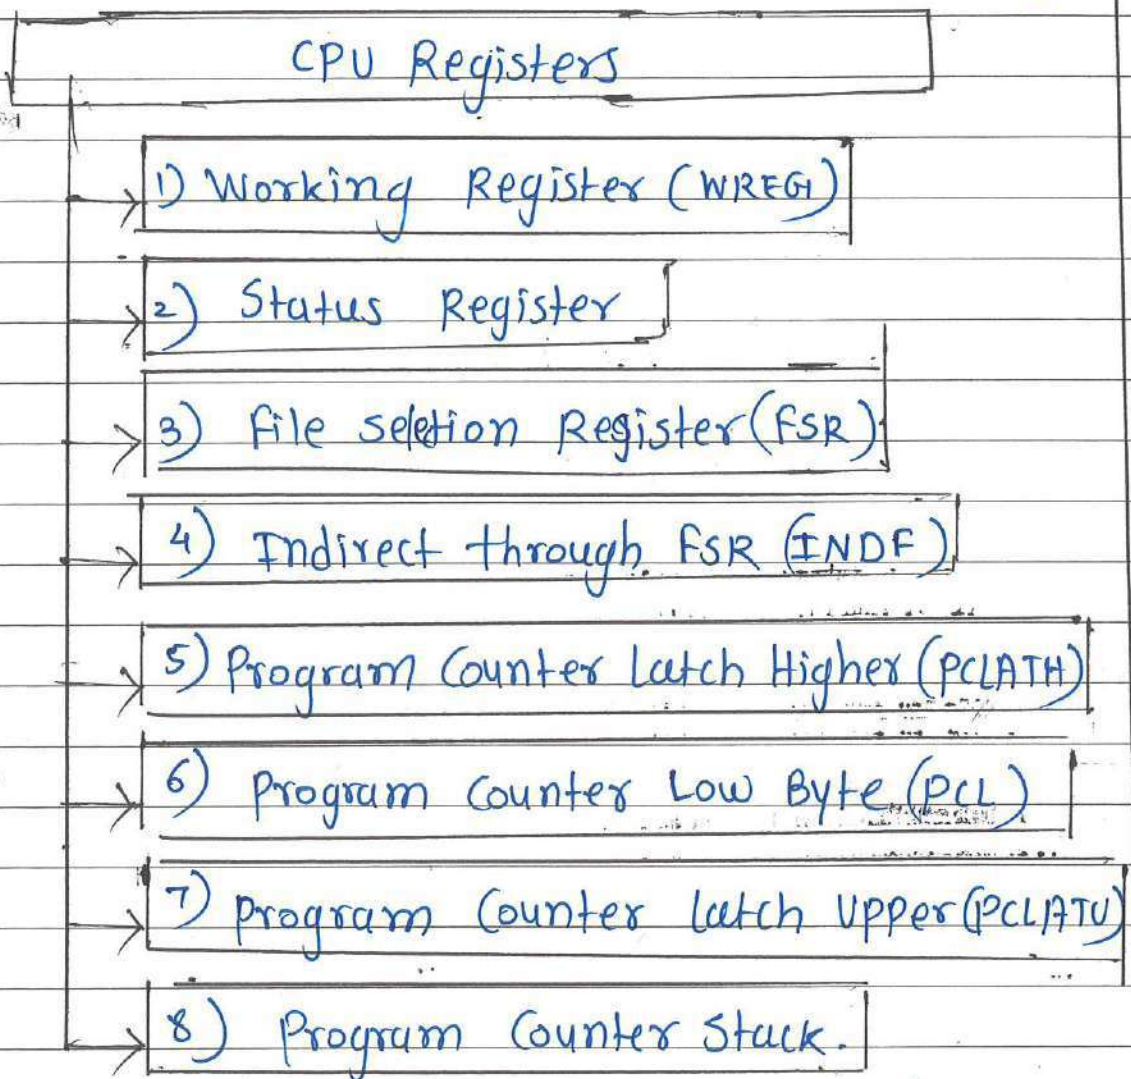 CPU Registers
1) Working Register (WREG)
2) Status Register
3) File seletion Register (FSR)
4) Indirect through FSR (INDF)
5) Program Counter Latch Higher (PCLATH)
6) Program Counter Low Byte (PCL)
7) Program Counter Latch Upper (PCLATU)
8) Program Counter Stack.